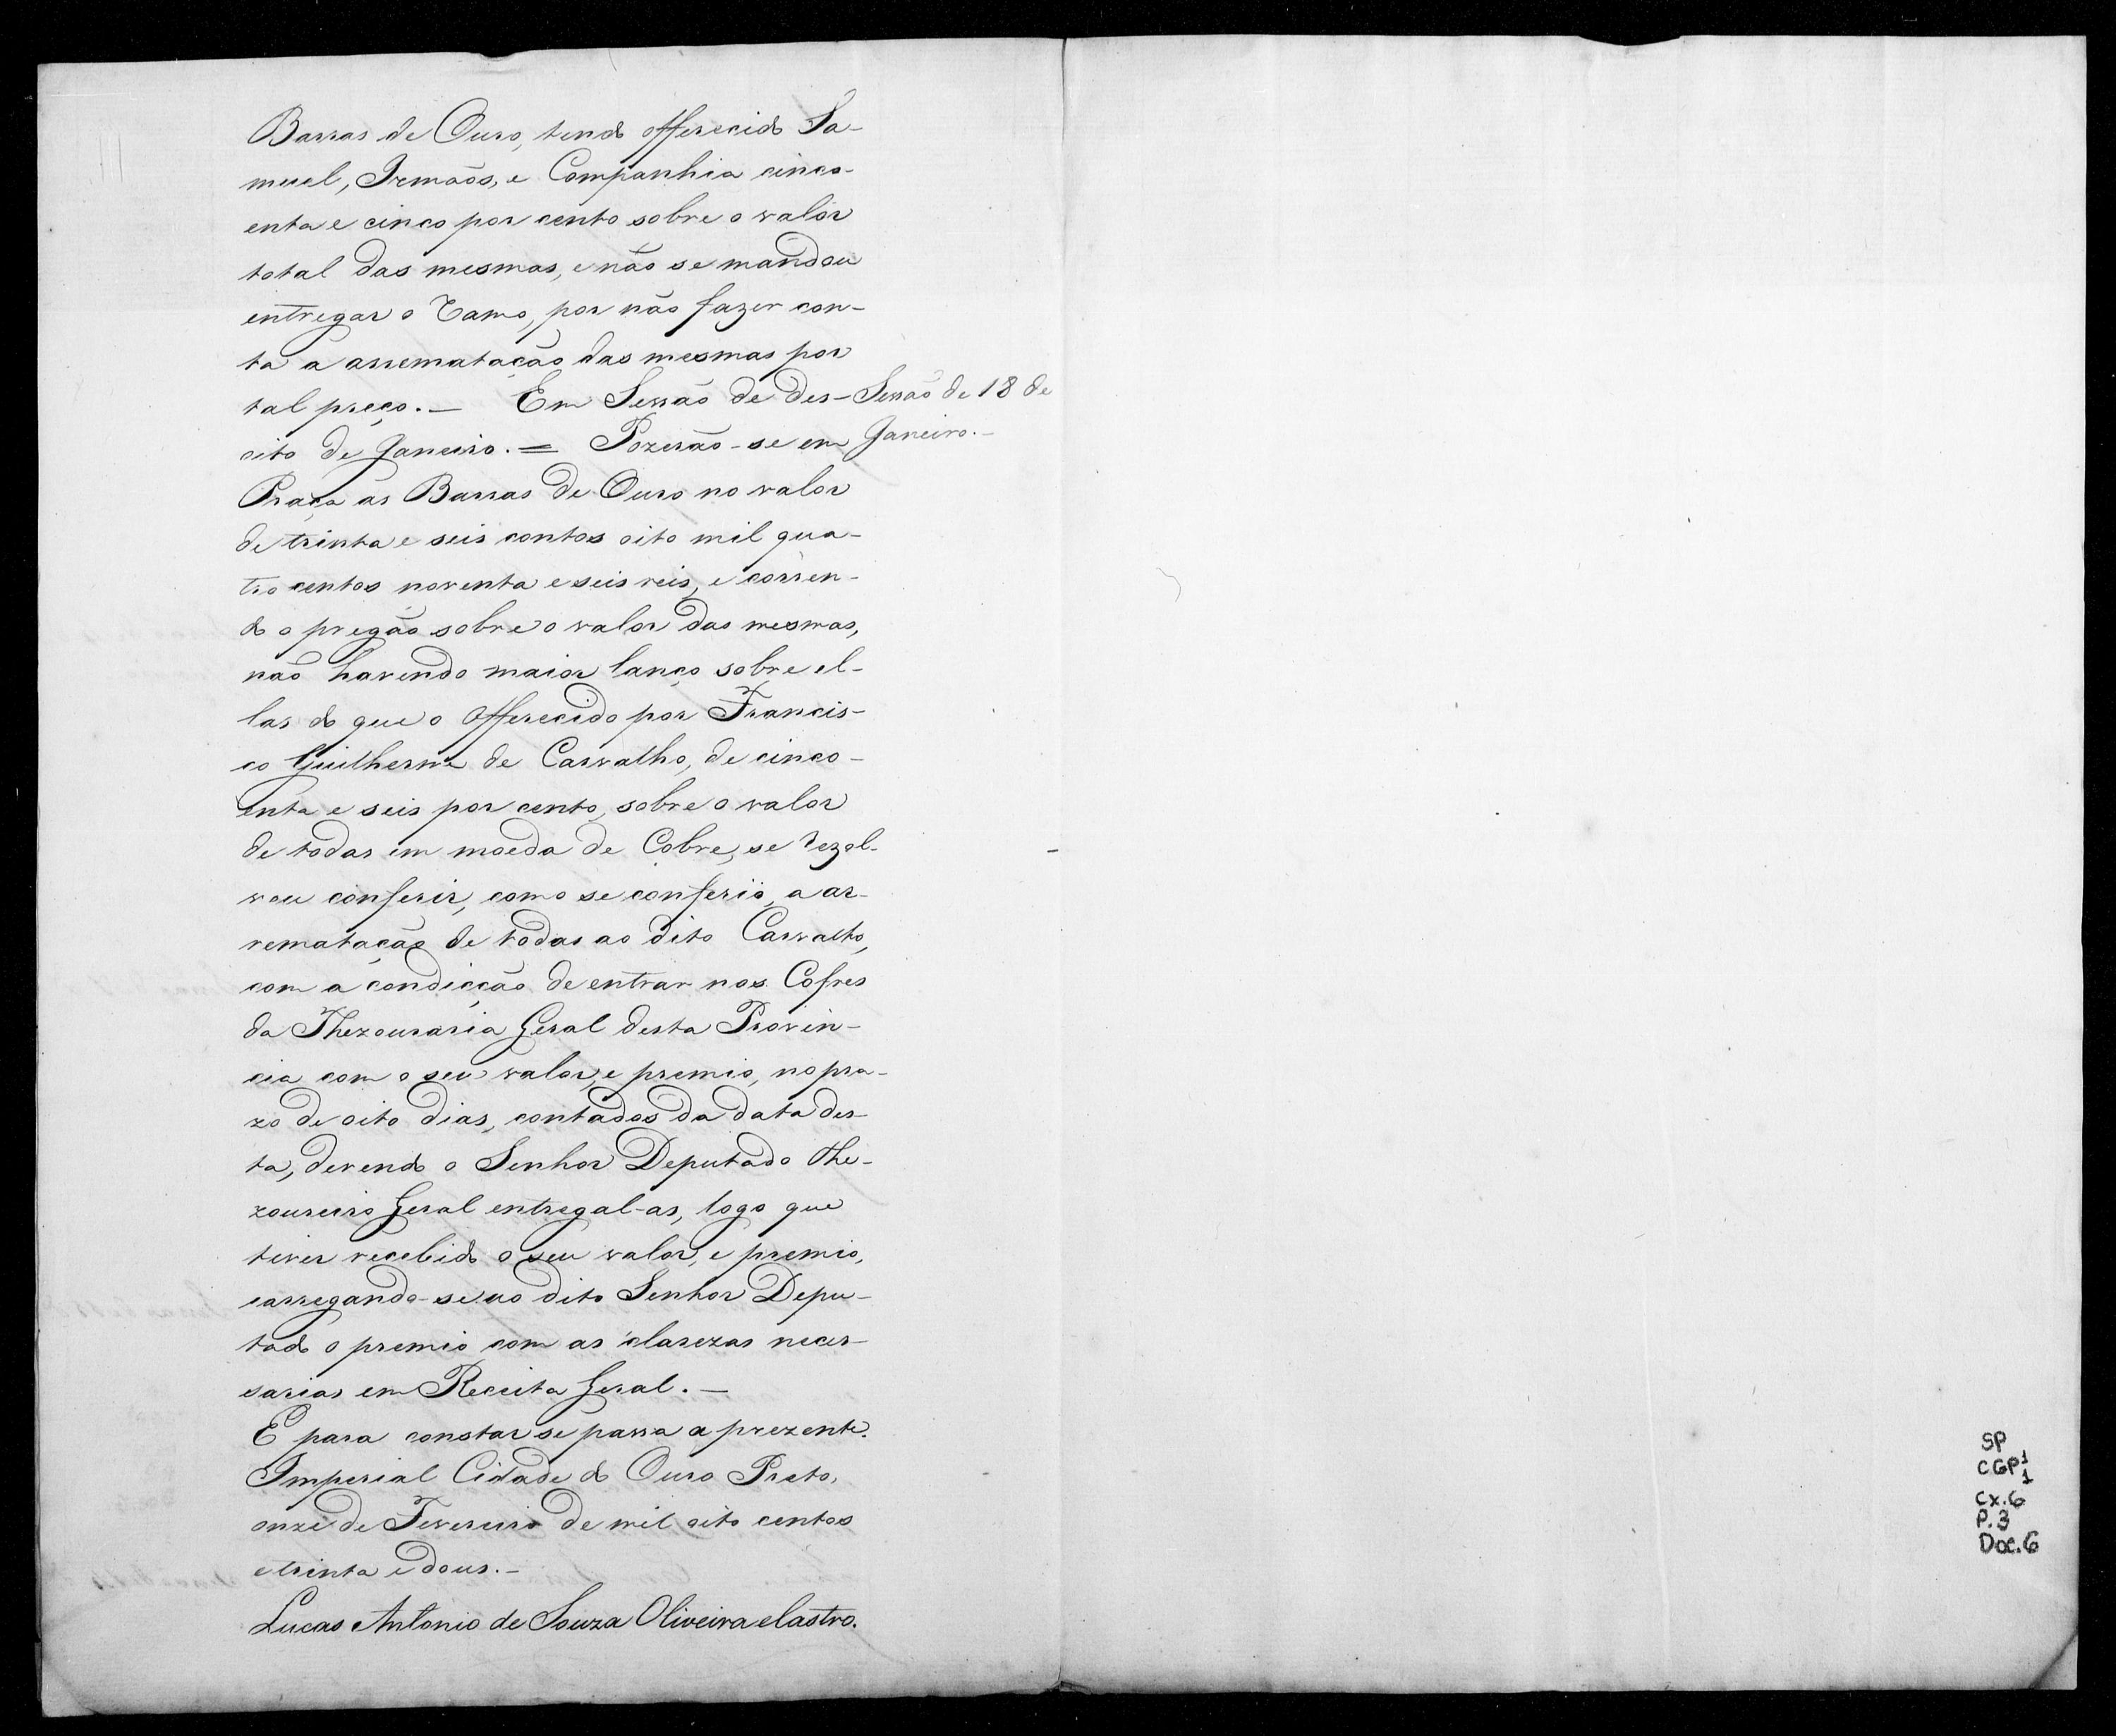 Barras de Ouro, tendo offerecido Sa-
muel, Irmãos, e Companhia cinco-
enta e cinco por cento sobre o valor
total das mesmas, e não se mandou
entregar o Ramo, por não fazer con-
ta a arrematação das mesmas por
tal preço. — Em Sessão de des-
oito de Janeiro. = Pozerão-se em
Sessão de 18 de
Janeiro. -
Praça as Barras de Ouro no valor
de trinta e seis contos oito mil qua-
tro centos noventa e seis reis, e corren-
do o pregão sobre o valor das mesmas,
não havendo maior lanço sobre el-
las do que o offerecido por Francis-
co Guilherme de Carvalho, de cinco-
enta e seis por cento, sobre o valor
de todas em moeda de Cobre, se rezol-
veu conferir, como se conferio, a ar-
rematação de todas ao dito Carvalho,
com a condicção de entrar nos Cofres
da Thezouraria Geral desta Provin-
cia com o seu valor, e premio, no pra-
zo de oito dias, contados da data des-
ta, devendo o Senhor Deputado The-
zoureiro Geral entregal-as, logo que
tiver recebido o seu valor, e premio,
carregando-se ao dito Senhor Depu-
tado o premio com as clarezas neces-
sarias em Receita Geral. —
E para constar se passa a prezente.
Imperial Cidade do Ouro Preto,
onze de Fevereiro de mil oito centos
e trinta e dous. -
Lucas Antonio de Souza Oliveira e Castro.
SP
CGP1
1
Cx.6
P.3
Doc.6